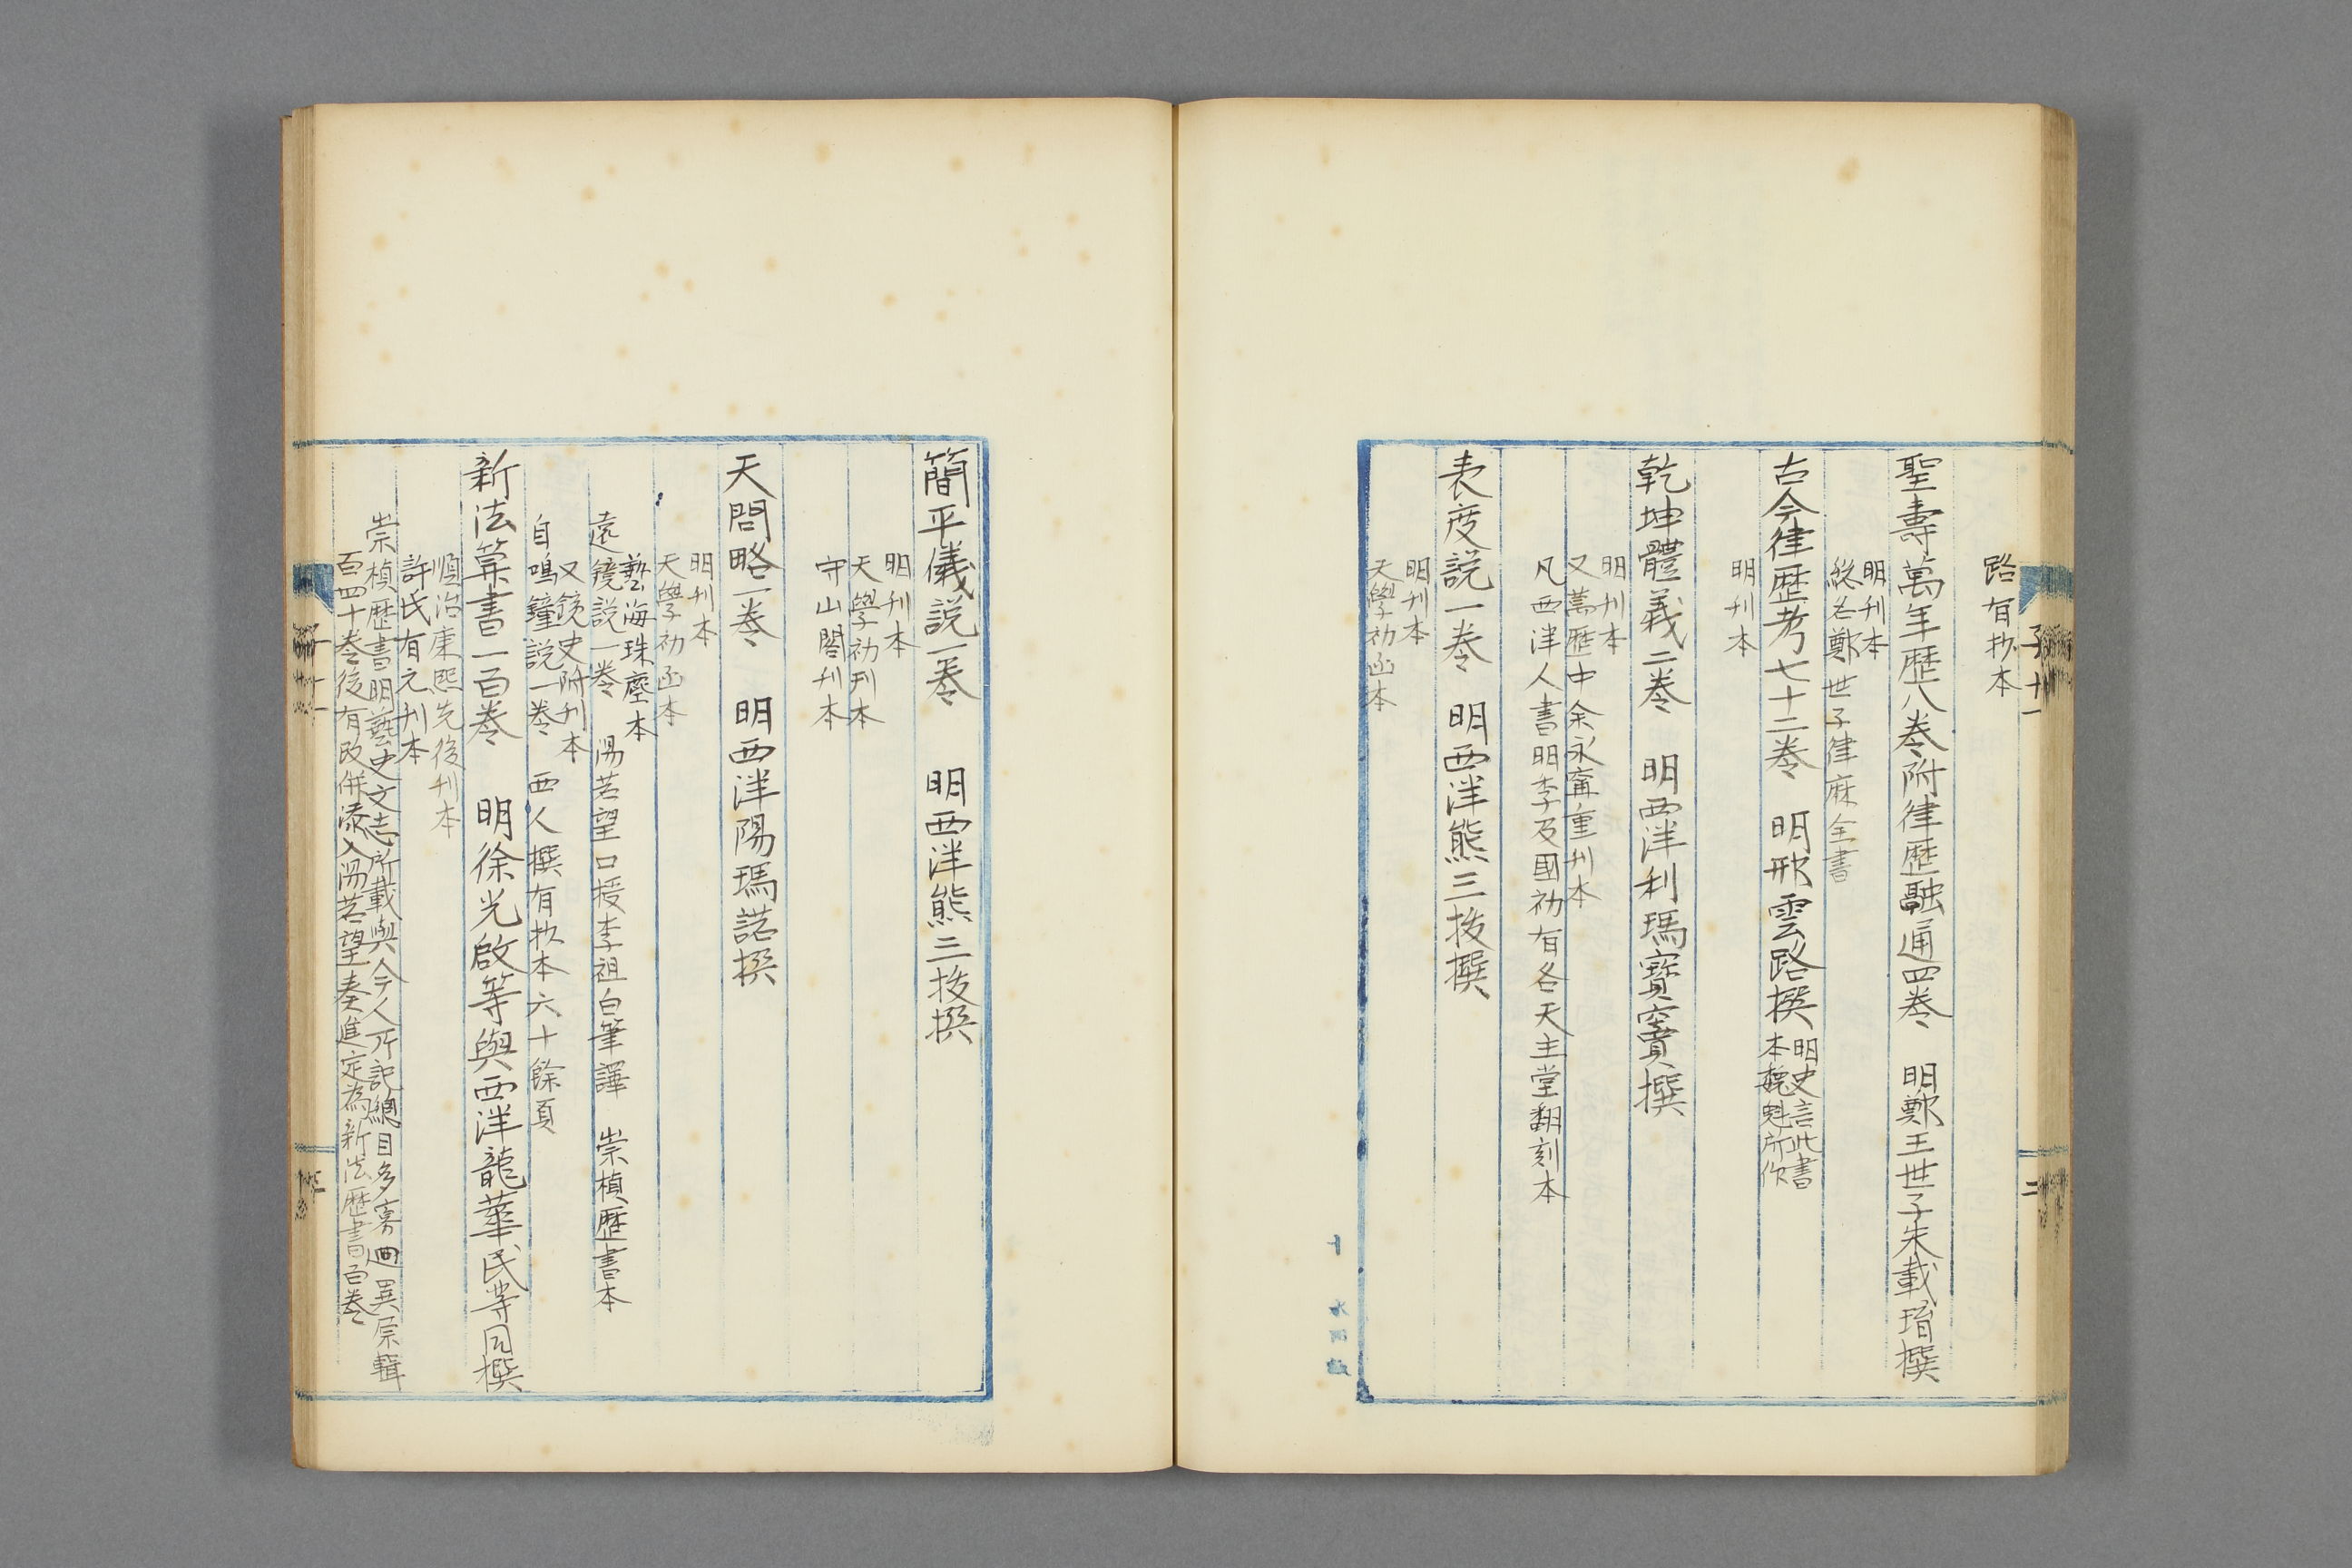 路有抄本
聖壽萬年歷八卷附律歷融通四卷　明鄭王世子朱載堉撰
明刊本
總名鄭世子律麻全書
古今律歷考七十二卷　明邢雲路撰
明史言此書
本魏魁所作
明刊本
乾坤體義二卷　明西洋利瑪竇撰
明刊本
又萬歷中余永甯重刊本
凡西洋人書明季及國初有各天主堂翻刻本
表度説一卷　明西洋熊三拔撰
明刊本
天學初函本
子十一
二
簡平儀説一卷　明西洋熊三拔撰
明刊本
天學初刊本
守山閣刊本
天問略一卷　明西洋陽瑪諾撰
明刊本
天學初函本
藝海珠塵本
遠鏡説一卷　湯若望口授李祖白筆譯　崇楨歷書本
又鏡史附刊本
自鳴鐘説一卷　西人撰有抄本六十餘頁
新法筭書一百卷　明徐光啟等與西洋龍華民等同撰
順治康熙先後刊本
許氏有元刊本
崇楨歷書明藝史文志所載與今人所記總目多寡迥異原輯
百四十卷後有改併添入湯若望奏進定為新法歷書百卷